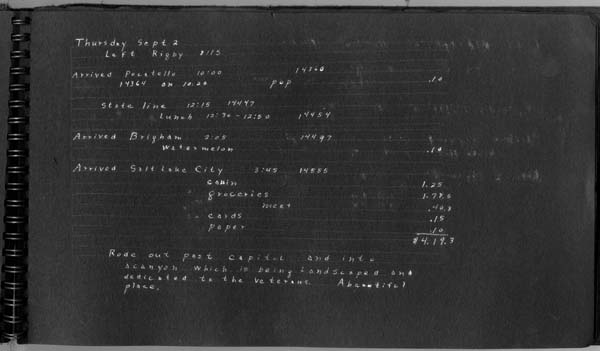 Thursday Sept 2
Left Rigby 8:15
Arrived Pocatello 10:00 14360
14364 on 10:20 pop .10
State line 12:15 14447
Lunch 12:30 - 12:50 14454
Arrived Brigham 2:05 14497
Watermelon .10
Arrived Salt Lake City 3:45 14555
cabin 1.25
groceries
meet
cards .15
paper .10
$4.19.3
Rode out past capitol and into
a canyon which is being landscaped and
dedicated to the veterans A beautiful
place.